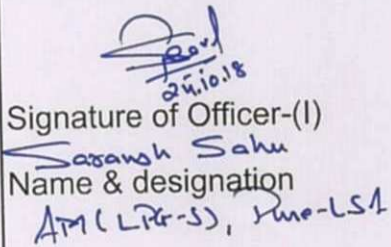 24.10.18
Signature of Officer-(I)
Saransh Sahu
Name & designation
AM (LPG-S), Pune-LSA